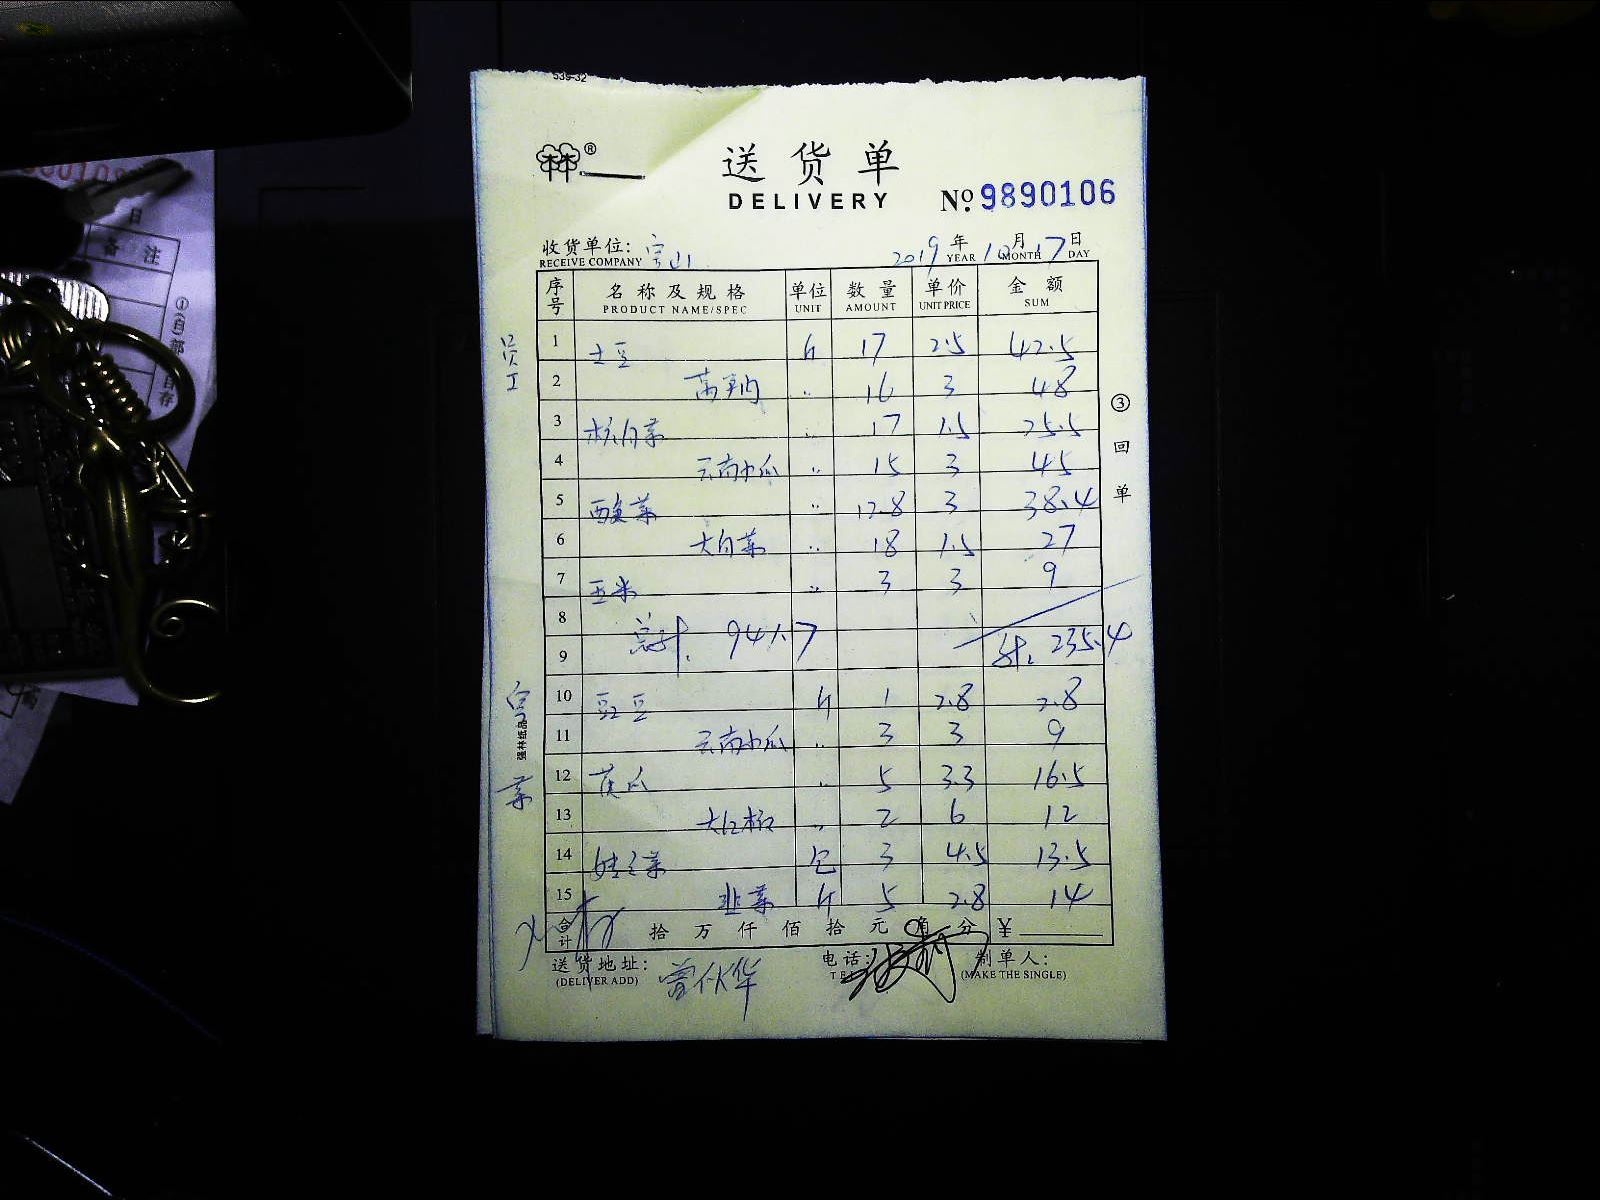 539-32
®
送货单
DELIVERY
No. 9890106
收货单位: 宝山
RECEIVE COMPANY
2019 年 10 月 17 日
YEAR MONTH DAY
序号 名称及规格 单位 数量 单价 金额
PRODUCT NAME/SPEC UNIT AMOUNT UNIT PRICE SUM
员工
1 土豆 斤 17 2.5 42.5
2 16 3 48
3 杭白菜 17 1.5 25.5
4 云南小瓜 15 3 45
5 酸菜 12.8 3 38.4
6 大白菜 18 1.5 27
7 玉米 3 3 9
8
9 总计. 941.7 计. 235.4
10 豇豆 斤 1 2.8 2.8
11 云南小瓜 3 3 9
12 黄瓜 5 3.3 16.5
13 2 6 12
14 包 3 4.5 13.5
15 韭菜 斤 5 2.8 14
合计 拾 万 仟 佰 拾 元 角 分 ¥
送货地址: 电话: 制单人:
(DELIVER ADD) TEL (MAKE THE SINGLE)
③回单
强林纸品
备注